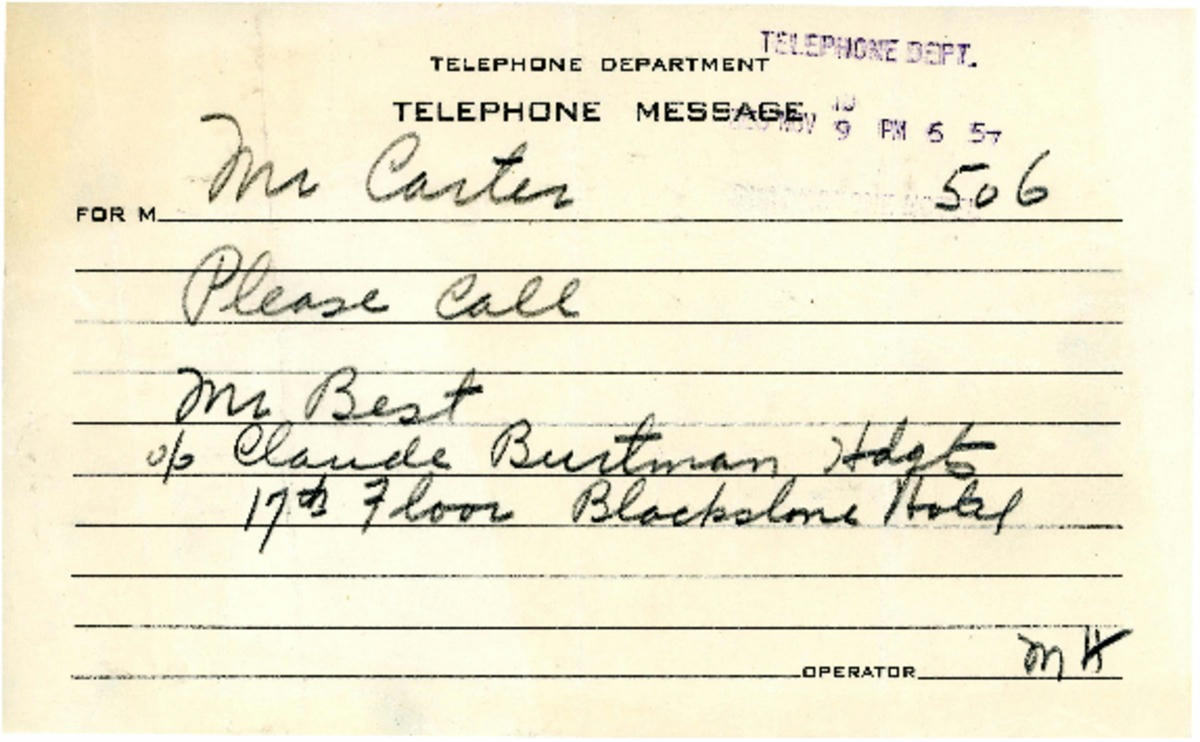 TELEPHONE DEPT.
TELEPHONE DEPARTMENT
TELEPHONE MESSAGE
NOV 9 PM 6 57
FOR M Mr Carter 506
Please Call
Mr Best
c/o Claude Burtman Hdqts
17th Floor Blackstone Hotel
OPERATOR MH